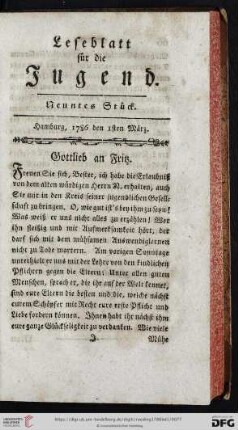 Leseblatt
für die
Jugend.
Neuntes Stück.
Hamburg, 1786 den 1sten März.
Gottlieb an Fritz.
Freuen Sie sich, Bester, ich habe die Erlaubniß
von dem alten würdigen Herrn R. erhalten, auch
Sie mit in den Kreis seiner jugendlichen Gesell-
schaft zu bringen. O, wie gut ist's bey ihm zu seyn!
Was weiß er uns nicht alles zu erzählen! Wer
ihn fleißig und mit Aufmerksamkeit hört, der
darf sich mit dem mühsamen Auswendiglernen
nicht zu Tode martern. Am vorigen Sonntage
unterhielt er uns mit der Lehre von den kindlichen
Pflichten gegen die Eltern. Unter allen guten
Menschen, sprach er, die ihr auf der Welt kennet,
sind eure Eltern die besten und die, welche nächst
eurem Schöpfer mit Recht eure erste Pflicht und
Liebe fordern können. Ihnen habt ihr nächst ihm
eure ganze Glückseligkeit zu verdanken. Wie viele
J
Mühe
DFG